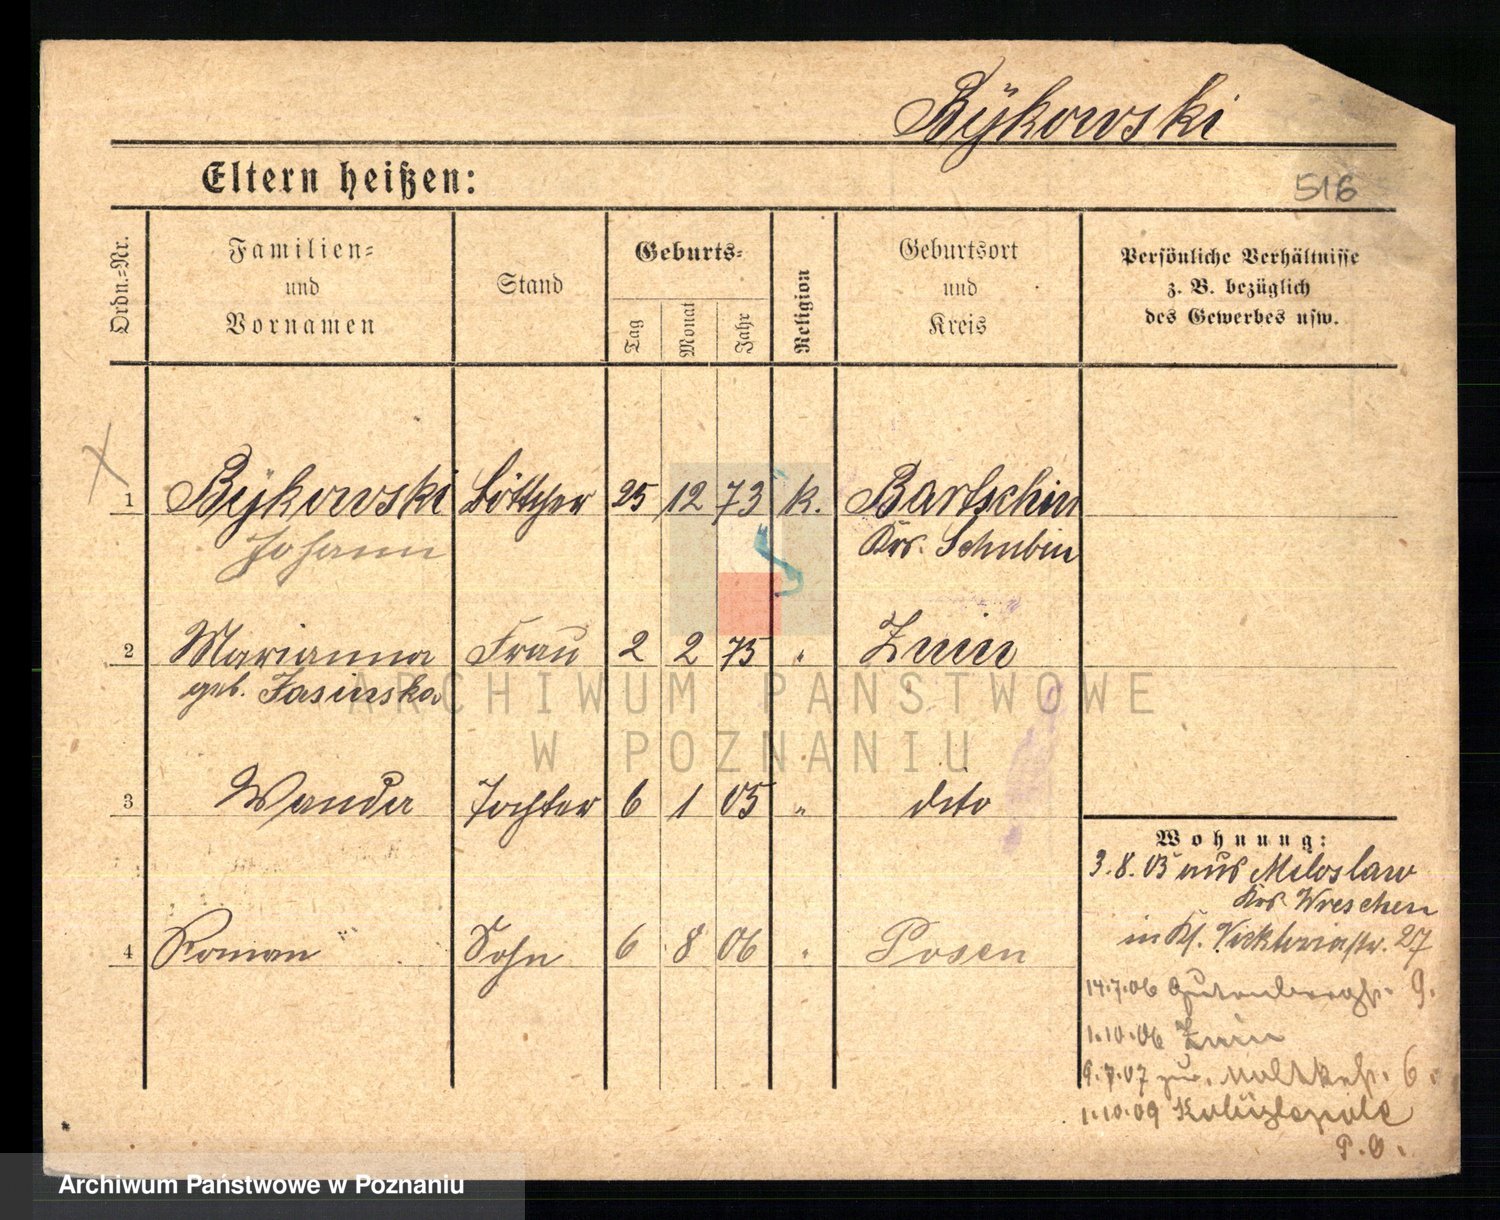 Bÿkowski
Eltern heißen:
516
Ordn.=Nr.
Familien=
und
Vornamen
Stand
Geburts=
Tag
Monat
Jahr
Religion
Geburtsort
und
Kreis
Persönliche Verhältnisse
z. B. bezüglich
des Gewerbes usw.
1 Bÿkowski Böttcher 25 12 73 k. Bartschin
Johann Krs. Schubin
2 Marianna Frau 2 2 75 " Znin
geb. Jasinska
3 Wanda Tochter 6 1 05 " dito
4 Roman Sohn 6 8 06 " Posen
Wohnung:
3.8.05 aus Miloslaw
Krs. Wreschen
in Viktoriastr. 27
14.7.06 Gutenbergstr. 9.
1.10.06 Znin
9.7.07 zur. Moltkestr. 6.
1.10.09
P.O.
ARCHIWUM PAŃSTWOWE
W POZNANIU
Archiwum Państwowe w Poznaniu